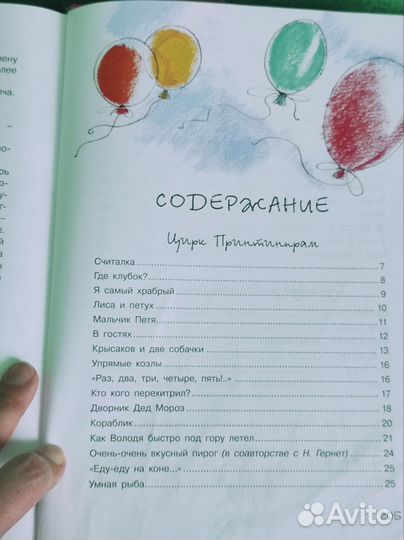 мену
олее
еча.
–
по-
рь
о-
у-
г-
–
е.
й
а
н
я
СОДЕРЖАНИЕ
Цирк Принтинпрам
Считалка 7
Где клубок? 8
Я самый храбрый 9
Лиса и петух 10
Мальчик Петя 11
В гостях 12
Крысаков и две собачки 13
Упрямые козлы 16
«Раз, два, три, четыре, пять!..» 16
Кто кого перехитрил? 17
Дворник Дед Мороз 18
Кораблик 20
Как Володя быстро под гору летел 21
Очень-очень вкусный пирог (в соавторстве с Н. Гернет) 24
«Еду-еду на коне...» 25
Умная рыба 25
Avito